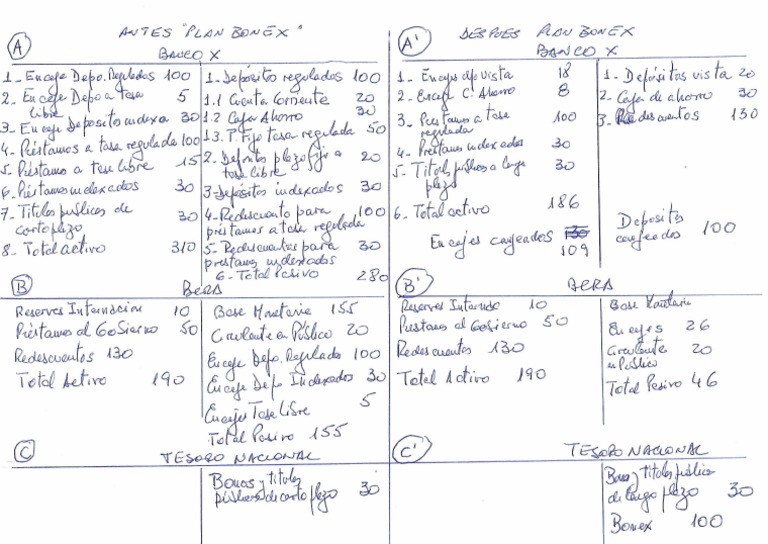 ANTES "PLAN BONEX"
A
BANCO X
1- Encaje Depo. Regulados 100
2- Encaje Depo a tasa libre 5
3- Encaje Depositos indexa 30
4- Préstamos a tasa regulada 100
5- Préstamo a tasa libre 15
6- Préstamos indexados 30
7- Titulos publicos de corto plazo 30
8- Total activo 310
1- Depósitos regulados 100
1.1 Cuenta Corriente 20
1.2 Caja Ahorro 30
1.3. P. Fijo tasa regulada 50
2- Deposito plazo fijo a tasa libre 20
3- Depósitos indexados 30
4- Redescuento para préstamos a tasa regulada 100
5- Redescuentos para préstamos indexados 30
6- Total Pasivo 280
B
BCRA
Reservas Internacion 10
Préstamos al Gobierno 50
Redescuentos 130
Total Activo 190
Base Monetaria 155
Circulante en Público 20
Encaje Depo. Regulado 100
Encaje Depo Indexados 30
Encajes Tasa Libre 5
Total Pasivo 155
C
TESORO NACIONAL
Bonos y titulos públicos de corto plazo 30
DESPUES PLAN BONEX
A'
BANCO X
1- Encajes dpo vista 18
2- Encaje C. Ahorro 8
3- Prestamos a tase regulada 100
4- Prestamos indexados 30
5- Titulos publicos a largo plazo 30
6- Total activo 186
Encajes canjeados 109
1- Depósitos vista 20
2- Cajas de ahorro 30
3- Redescuentos 130
Depositos canjeados 100
B'
BCRA
Reservas Internac 10
Prestamos al Gobierno 50
Redescuentos 130
Total Activo 190
Base Monetaria
Encajes 26
Circulante en Público 20
Total Pasivo 46
C'
TESORO NACIONAL
Bonos y titulos públicos de largo plazo 30
Bonex 100